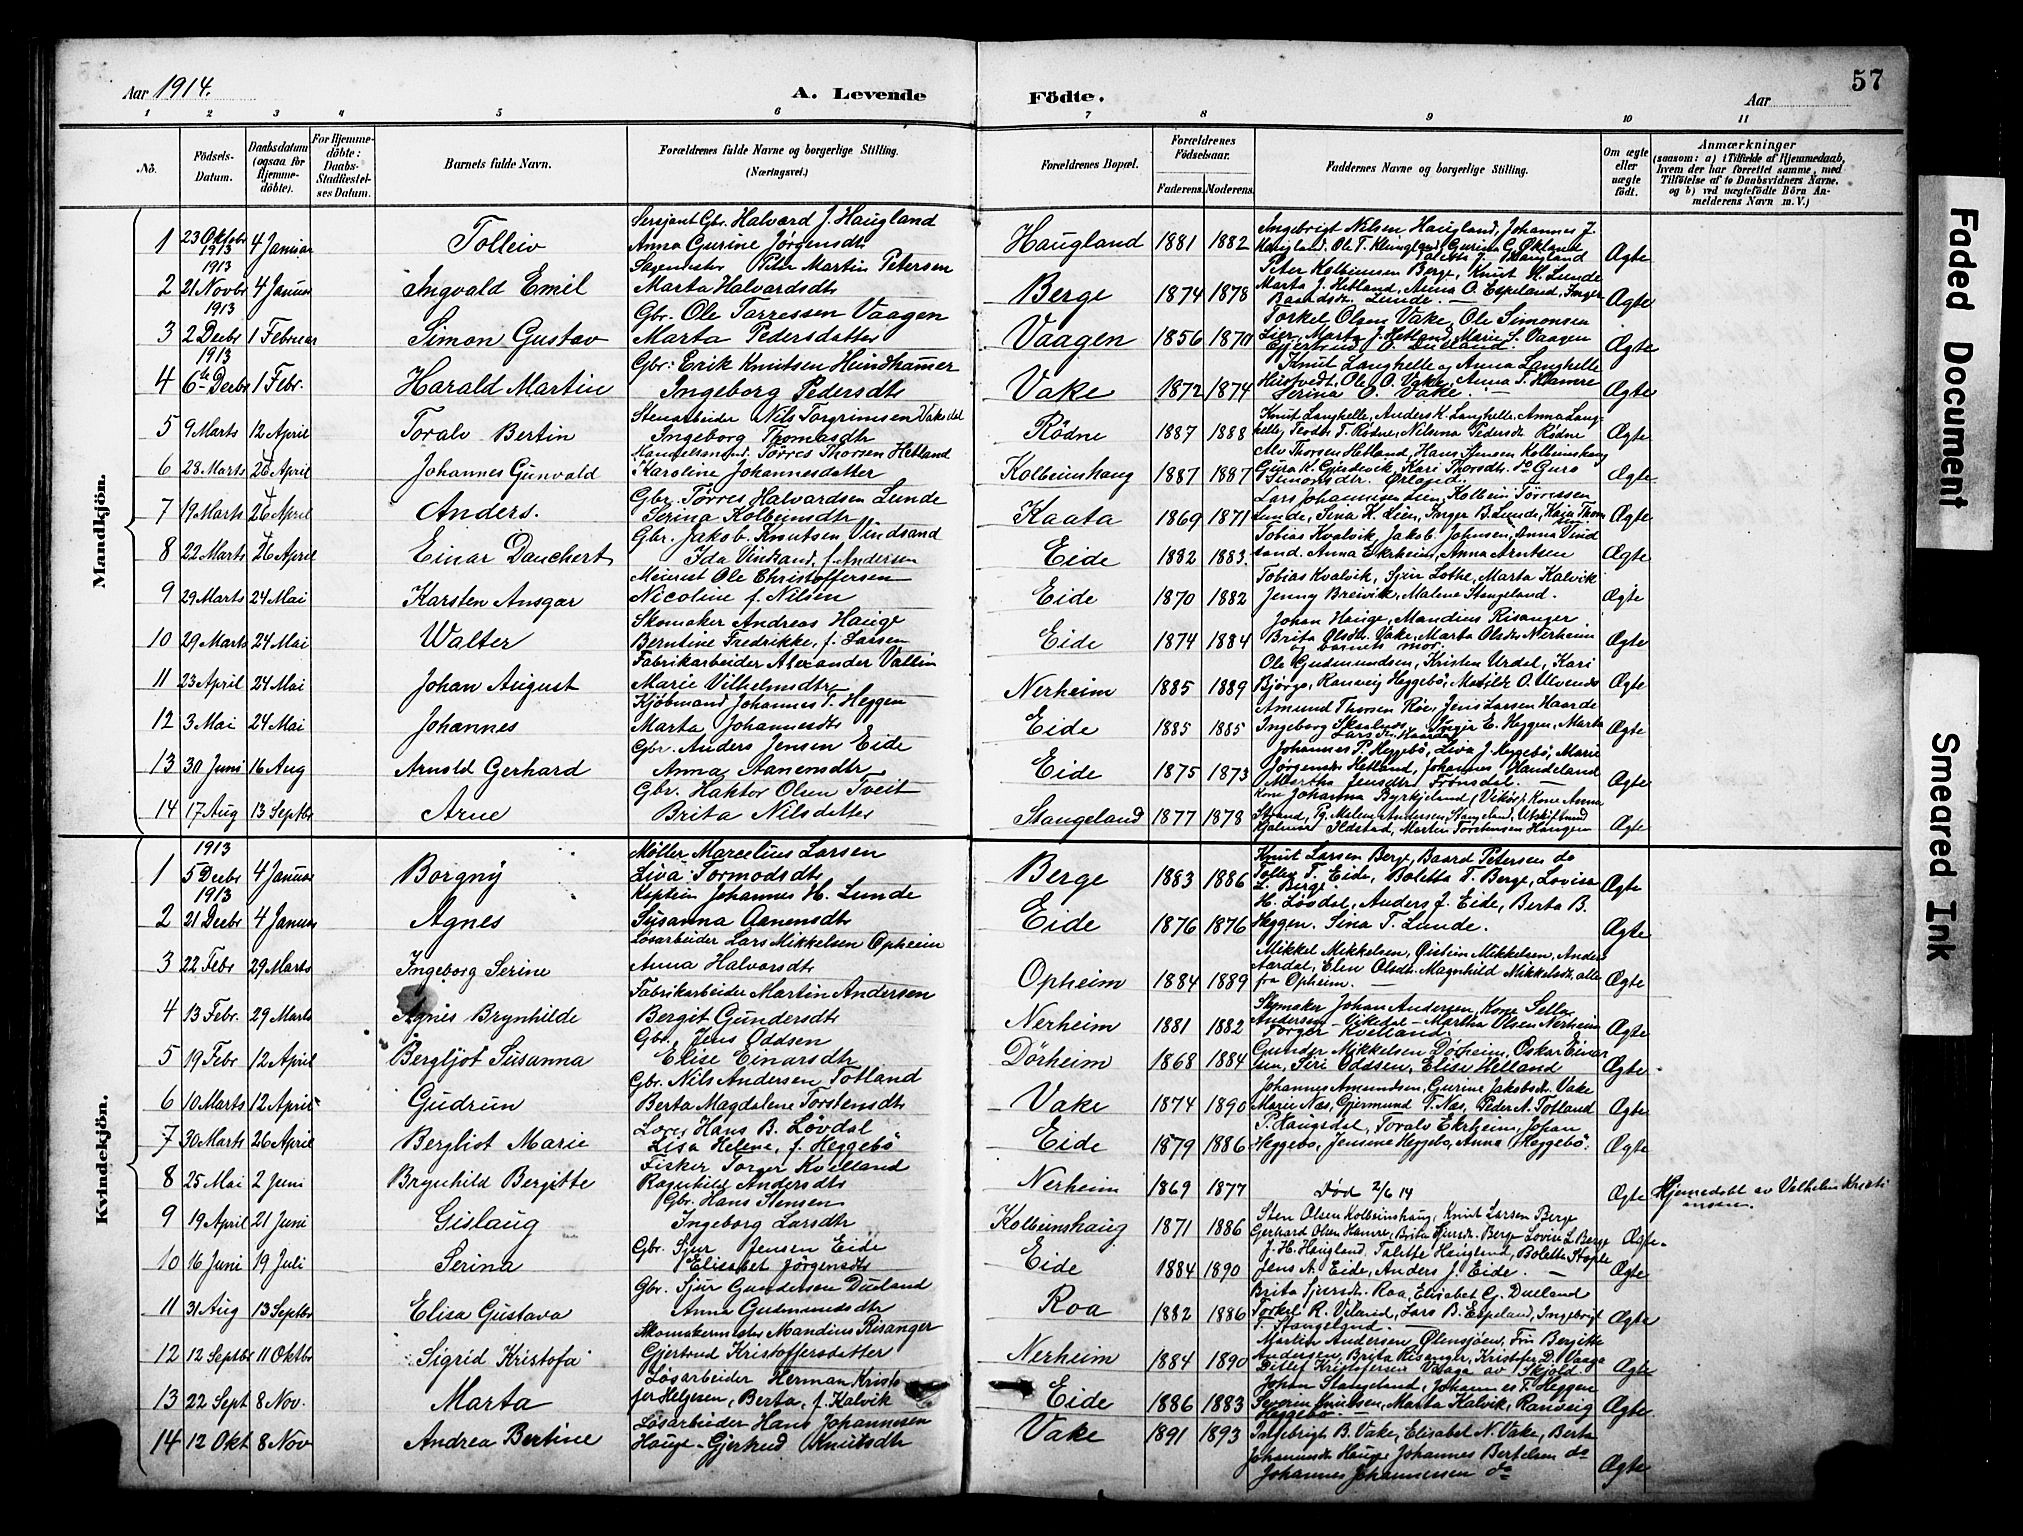 57
Aar 1914.
A. Levende Födte.
Aar
1 2 3 4 5 6 7 8 9 10 11
No.
Födsels-Datum.
Daabsdatum (ogsaa for Hjemme-döbte).
For Hjemme-döbte: Daabs-Stadfæstel-ses Datum.
Barnets fulde Navn.
Forældrenes fulde Navne og borgerlige Stilling. (Næringsvei.)
Forældrenes Bopæl.
Forældrenes Födselsaar.
Faderens. Moderens.
Faddernes Navne og borgerlige Stilling.
Om ægte eller uægte födt.
Anmærkninger
(saasom: a) i Tilfælde af Hjemmedaab, hvem der har forrettet samme, med Tilföielse af to Daabsvidners Navne, og b) ved uægtefödte Börn An-melderens Navn m. V.)
Mandkjön.
1 23 Oktobr 1913 4 Januar Tolleiv Sersjant Gbr. Halvard J. Haugland Anna Gurine Jörgensdtr Haugland 1881 1882 Ingebrigt Nilsen Haugland, Johannes J. Haugland. Ole T. Klungland, Gurina G. Økland Talette J. Haugland Ægte
2 1913 21 Novbr 4 Januar Ingvald Emil Sagmester Peter Martin Petersen Marta Halvardsdtr Berge 1874 1878 Peter Kolbeinsen Berge, Knut H. Lunde Marta J. Hetland, Anna O. Espeland, Inger Baardsdtr Lunde. Ægte
3 1913 2 Decbr 1 Februar Simon Gustav Gbr. Ole Torressen Vaagen Marta Pedersdatter Vaagen 1856 1870 Torkel Olsen Vake, Ole Simonsen Lier, Marta J. Hetland, Marie S. Vaagen Gjertrud O. Dueland. Ægte
4 1913 6te Decbr 1 Febr. Harald Martin Gbr: Erik Knutsen Hundhamer Ingeborg Pedersdtr Vake 1872 1874 Knut Langhelle og Anna Langhelle Hustvedt, Ole O. Vake, Anna S. Hamre Serina O. Vake. Ægte
5 9 Marts 12 April Toralv Bertin Stenarbeider Nils Torgrimsen Vakedal Ingeborg Thomasdtr Rödne 1887 1888 Knut Langhelle, Anders K. Langhelle, Anna Lang-helle, Teodor T. Rödne, Nilsina Pedersdtr Rödne Ægte
6 28 Marts 26 April Johannes Gunvald Handelsmand. Torres Thorsen Hetland Karoline Johannesdatter Kolbeinshaug 1887 1887 Alv Thorsen Hetland, Hans Stensen Kolbeinshaug Gura K. Gjerdevik, Kari Thorsdtr. Guro Simonsdtr. Ørland. Ægte
7 19 Marts 26 April Anders. Gbr. Törres Halvardsen Lunde Serina Kolbeinsdtr Kaata 1869 1871 Lars Johannesen Lien, Kolbein Törressen Lunde, Sina K. Lien, Inger B. Lunde, Kaia Thom Ægte
8 22 Marts 26 April Einar Dauchert Gbr. Jakob Knutsen Vindsand Ida Vindsand, f. Andersen Eide 1882 1883. Tobias Kvalvik, Jakob Johnsen, Anna Vind sand. Anna Ekrheim, Anna Arntsen Ægte
9 29 Marts 24 Mai Karsten Ansgar Meierist Ole Christoffersen Nicoline f. Nilsen Eide 1870 1882 Tobias Kvalvik, Sjur Lothe, Marta Kalvik Jenny Breivik, Malene Stangeland. Ægte
10 29 Marts 24 Mai Walter Skomaker Andreas Hauge Berntine Fredrikke, f. Larsen Eide 1874 1884 Johan Hauge, Mandius Risanger Brita Olsdtr. Vake, Marta Olsdtr Nerheim og barnets mor. Ægte
11 23 April 24 Mai Johan August Fabrikarbeider Alexander Vallin Marie Vilhelmsdtr Nerheim 1885 1889 Ole Gudmundsen, Kristen Urdal, Kari Bjørgo, Ranveig Heggebö, Matilde O. Ulvenes Ægte
12 3 Mai 24 Mai Johannes Kjöbmand Johannes T. Heggen Marta Johannesdtr Eide 1885 1885 Amund Thorsen Röe, Jens Larsen Haarde Ingeborg Skaalnes, Inger E. Heggen, Marta Larsdtr. Haarde Ægte
13 30 Juni 16 Aug Arnold Gerhard Gbr. Anders Jensen Eide Anna Aanensdtr Eide 1875 1873 Johannes P. Heggebö, Liva J. Heggebö, Marie Jörgensdtr Hetland, Johannes Handeland Martha Jensdtr Frönsdal. Ægte
14 17 Aug 13 Septbr Arne Gbr. Haktor Olsen Tveit Brita Nilsdatter Stangeland 1877 1878 Kone Johanna Byrkjeland (Vikör), Kone Anna Strand, Pg. Malene Andersen, Stangeland, Utskiftmnd Hjalmar Ildstad, Martin Torstensen Haugen Ægte
Kvindekjön.
1 1913 5 Decbr 4 Januar Borgny Möller Marcelius Larsen Liva Tormodsdtr Berge 1883 1886 Knut Larsen Berge, Baard Petersen do Tollev T. Eide, Boletta T. Berge, Lovisa L. Berge. Ægte
2 1913 21 Decbr 4 Januar Agnes Kaptein Johannes H. Lunde Susanna Aanensdtr Eide 1876 1876 H. Lövdal, Anders J. Eide, Berta B. Heggen. Sina T. Lunde. Ægte
3 22 Febr 29 Marts Ingeborg Serine Lösarbeider Lars Mikkelsen Opheim Anna Halvorsdtr Opheim 1884 1889 Mikkel Mikkelsen, Øistein Mikkelsen, Anders Aardal, Elen Olsdtr. Magnhild Mikkelsdtr, alle fra Opheim. Ægte
4 13 Febr. 29 Marts Agnes Brynhilde Fabrikarbeider Martin Andersen Bergit Gundersdtr Nerheim 1881 1882 Skomaker Johan Andersen, Kone Selle Andersen - Vikedal - Martha Olsen Nerheim Torger Kvelland. Ægte
5 19 Febr 12 April Bergljot Susanna Gbr. Jens Oddsen Elise Einarsdtr Dörheim 1868 1884 Gunder Mikkelsen Dörheim, Oskar Einar sen, Siri Oddsen, Elise Helland Ægte
6 10 Marts 12 April Gudrun Gbr. Nils Andersen Totland Berta Magdalene Torstensdtr Vake 1874 1890 Johannes Amundsen, Gurine Jakobsdtr Vake Marie Næs, Gjermund T. Næs, Peder A. Totland Ægte
7 30 Marts 26 April Bergliot Marie Lærer Hans B. Lövdal Lisa Helene, f. Heggebö Eide 1879 1886 P. Haugsdal, Toralv Ekrheim, Johan Heggebö, Jensine Heggebö, Anna Heggebö. Ægte
8 25 Mai 2 Juni Brynhild Bergitte Fisker Torger Kvelland Ragnhild Andersdtr Nerheim 1869 1877 Död 2/6 14 Ægte Hjemmedöbt av Vilhelm Kristi ansen.
9 19 April 21 Juni Gislaug Gbr. Hans Stensen Ingeborg Larsdtr Kolbeinshaug 1871 1886 Sten Olsen Kolbeinshaug, Knut Larsen Berge Gerhard Olsen Hamre, Brita Sjursdtr. Berge Lovise L. Berge Ægte.
10 16 Juni 19 Juli Serina Gbr. Sjur Jensen Eide Elisabet Jörgensdtr Eide 1884 1890 J. H. Haugland. Talette Haugland, Bolette Stople Jens N. Eide, Anders J. Eide. Ægte
11 31 Aug 13 Septbr Elisa Gustava Gbr. Sjur Gundersen Dueland Anna Gudmundsdtr Roa 1882 1886 Brita Sjursdtr. Roa, Elisabet G. Dueland Torkel R. Viland, Lars B. Espeland, Ingebrigt T. Stangeland. Ægte
12 12 Septbr 11 Oktbr Sigrid Kristofa Skomakermester Mandius Risanger Gjertrud Kristoffersdatter Nerheim 1884 1890 Martin Andersen, Ølensjöen, Fru Bergitte Andersen, Brita Risanger, Kristofer D. Vaaga Ditlef Kristofersen Vaaga av Skjold. Ægte
13 22 Sept 8 Nov. Marta Lösarbeider Herman Kristo fer Helgesen, Berta, f. Kalvik Eide 1886 1883 Johan Stangeland, Johannes T. Heggen Severin Knutsen, Marta Kalvik, Ranveig Heggebö Ægte.
14 12 Okt 8 Nov Andrea Bertine Lösarbeider Hans Johannesen Hauge - Gjertrud Knutsdtr Vake 1891 1893 Ingebrigt B. Vake, Elisabet N. Vake, Berta Johannesdtr Hauge, Johannes Bertelsen do Johannes Johannessen do Ægte
Faded Document
Smeared Ink